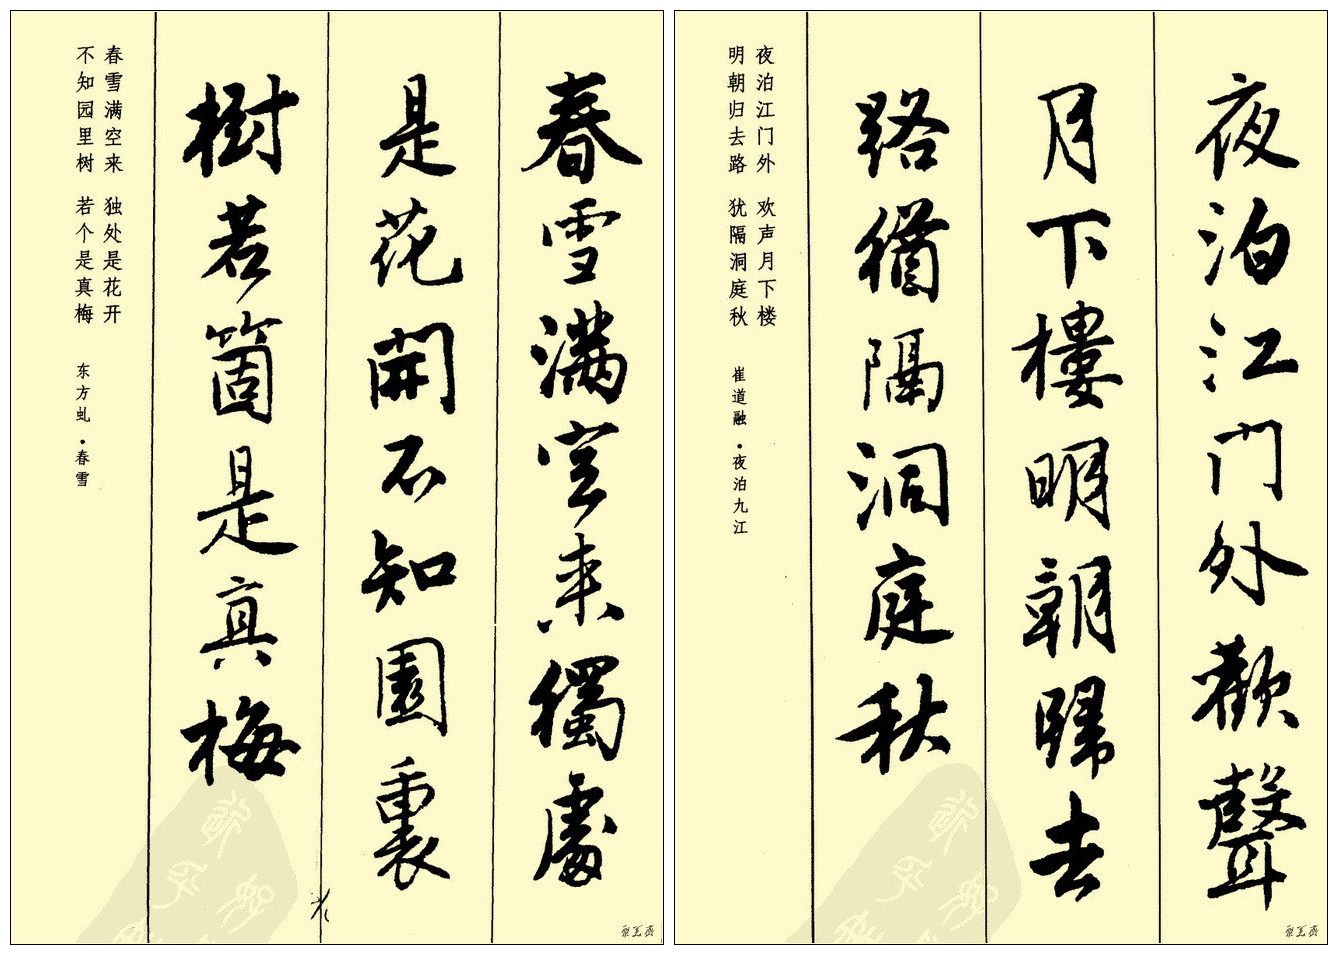 夜泊江门外歡聲
月下樓明朝歸去
路猶隔洞庭秋
夜泊江门外 欢声月下楼
明朝归去路 犹隔洞庭秋
崔道融·夜泊九江
春雪满空来獨處
是花開不知園裏
樹若箇是真梅
春雪满空来 独处是花开
不知园里树 若个是真梅
东方虬·春雪